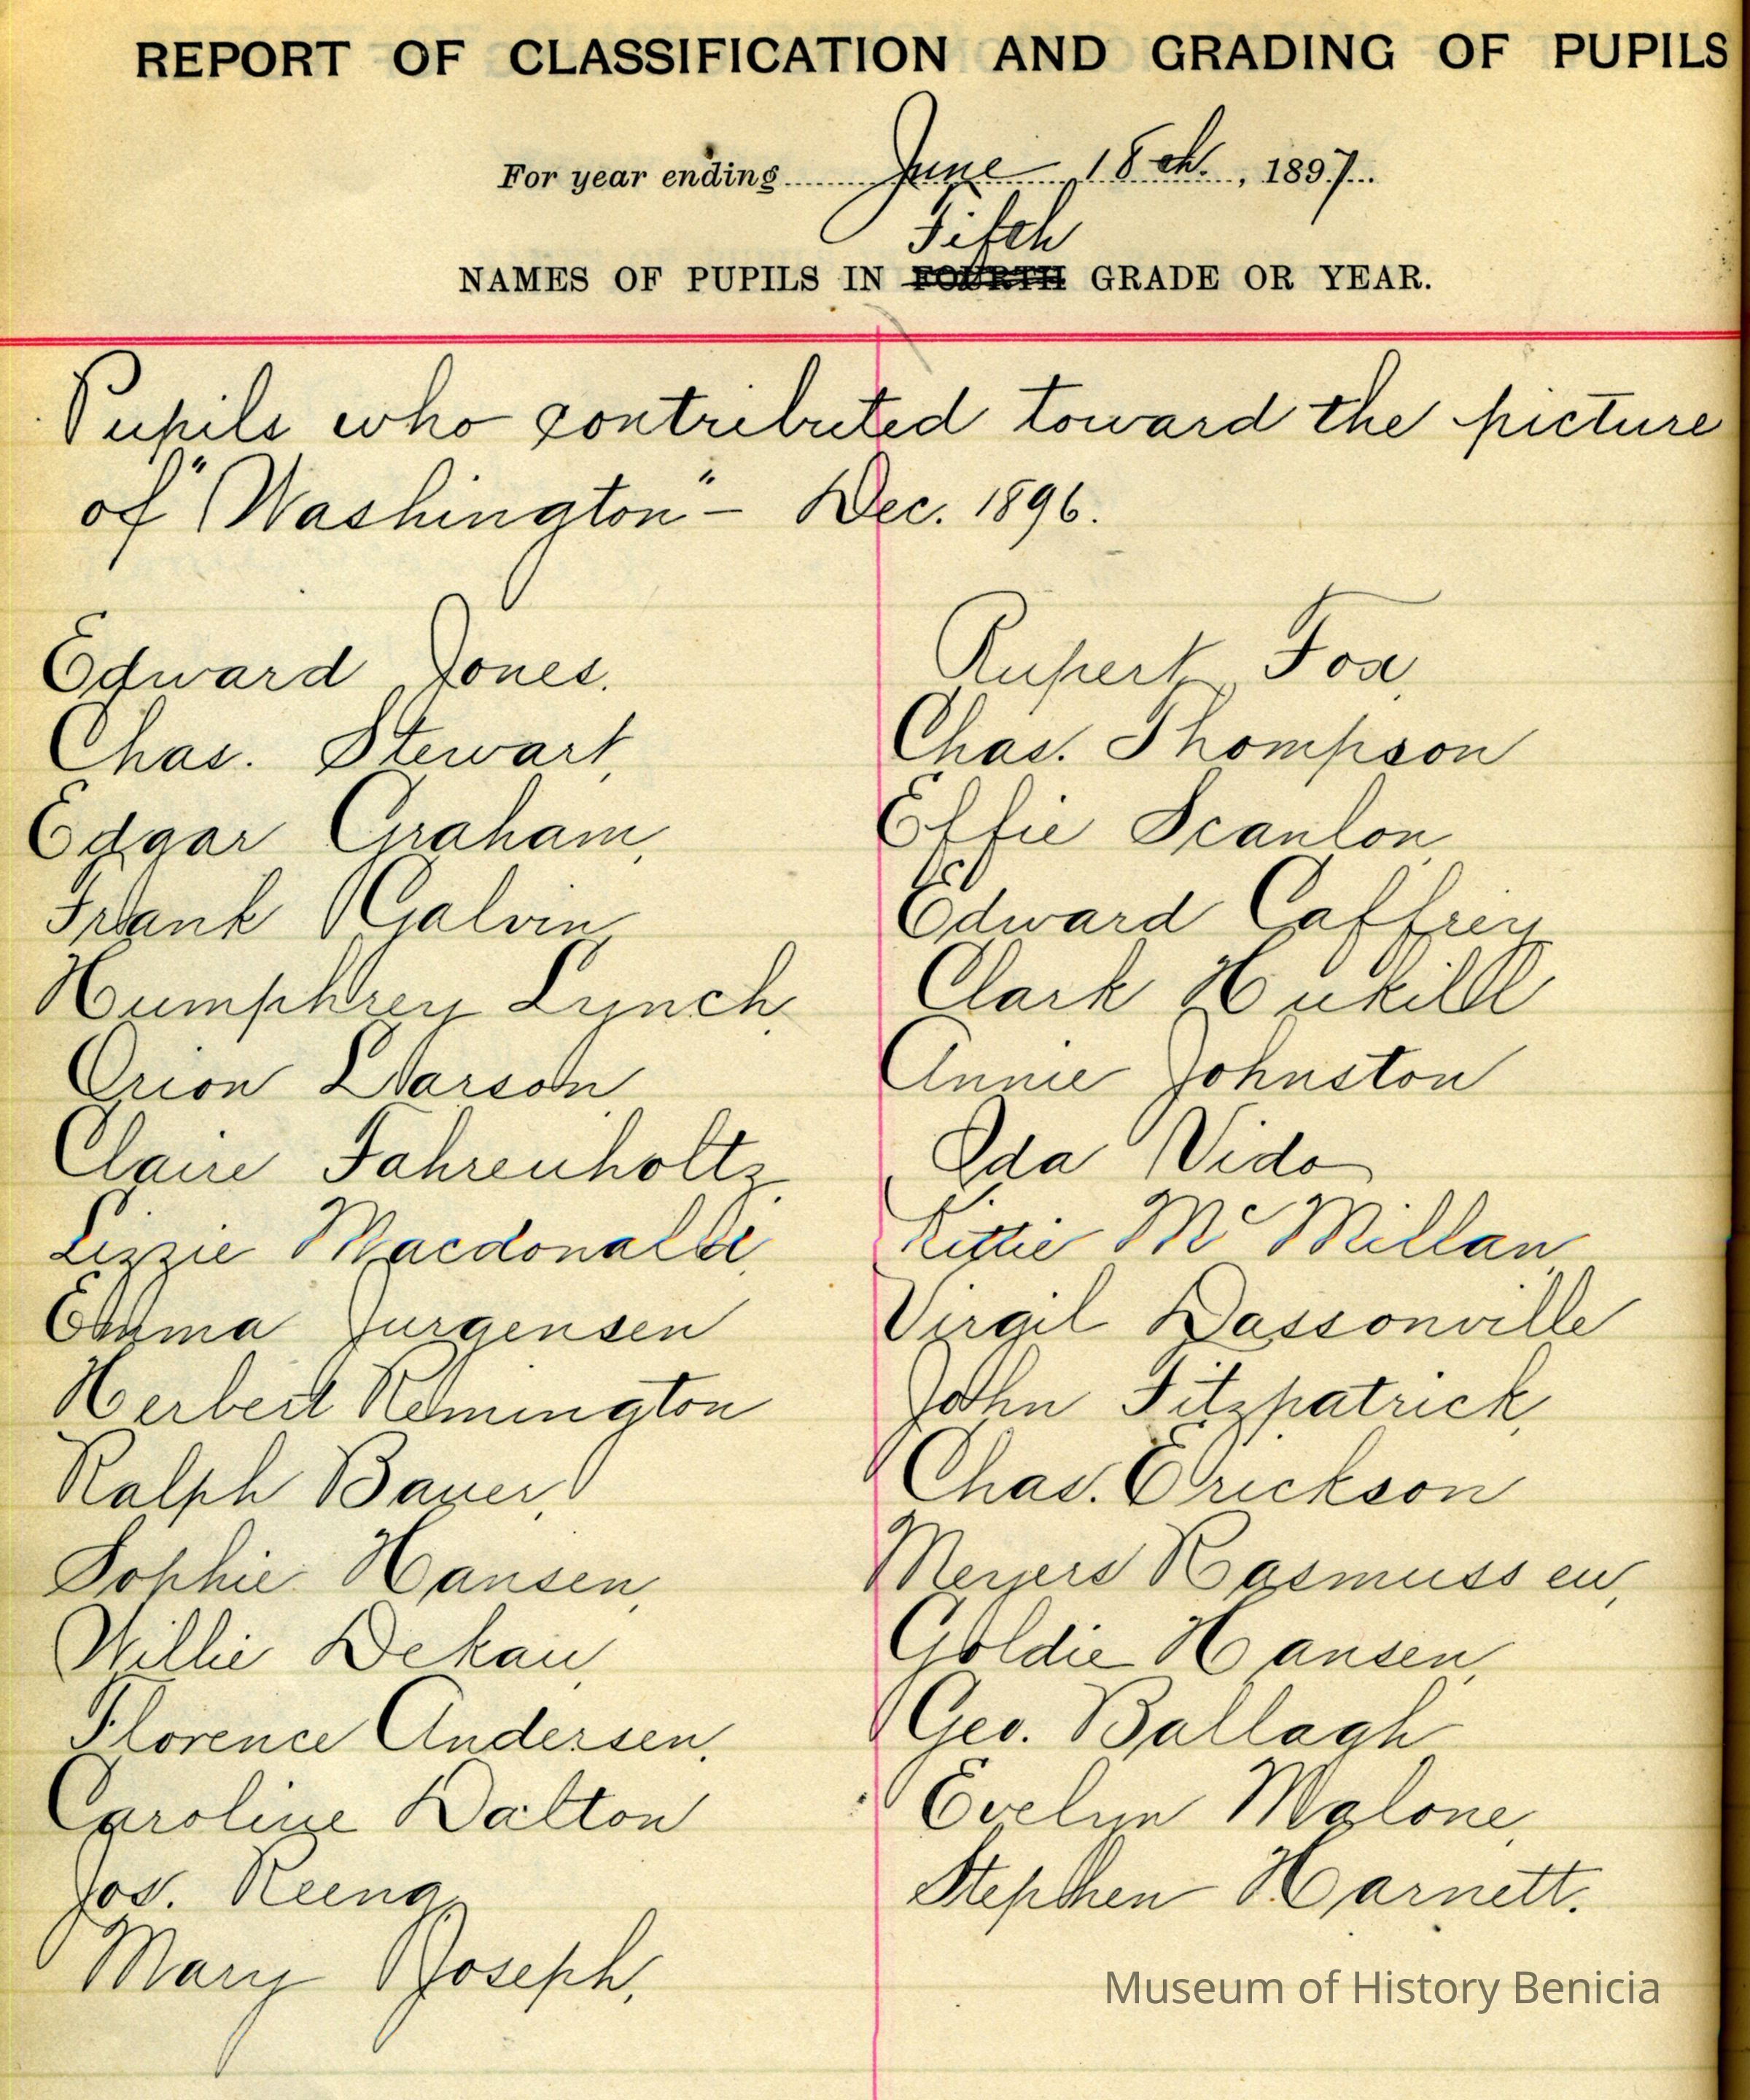 REPORT OF CLASSIFICATION AND GRADING OF PUPILS
For year ending June 18th, 1897
Fifth
NAMES OF PUPILS IN FOURTH GRADE OR YEAR.
Pupils who contributed toward the picture
of "Washington" – Dec. 1896.
Edward Jones.
Chas. Stewart,
Edgar Graham,
Frank Galvin
Humphrey Lynch,
Orion Larson
Claire Fahrenholtz
Lizzie Macdonald,
Emma Jurgensen
Herbert Remington
Ralph Bauer,
Sophie Hansen,
Willie Dekau
Florence Andersen,
Caroline Dalton
Jos. Reena
Mary Joseph,
Rupert Fox,
Chas. Thompson
Effie Scanlon
Edward Caffrey
Clark Hukill
Annie Johnston
Ida Vido
Kittie McMillan,
Virgil Dassonville
John Fitzpatrick,
Chas. Erickson
Meyers Rasmussen,
Goldie Hansen,
Geo. Ballagh
Evelyn Malone,
Stephen Harnett.
Museum of History Benicia